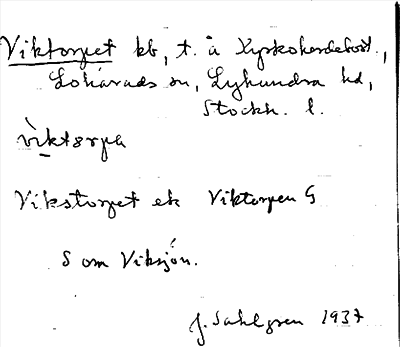 Viktorpet kb, t. å Kyrkoherdebost.,
Lohärads sn, Lyhundra hd,
Stockh. l.
viktørpa
Vikstorpet ek Viktorpen G
S om Viksjön.
J. Sahlgren 1937